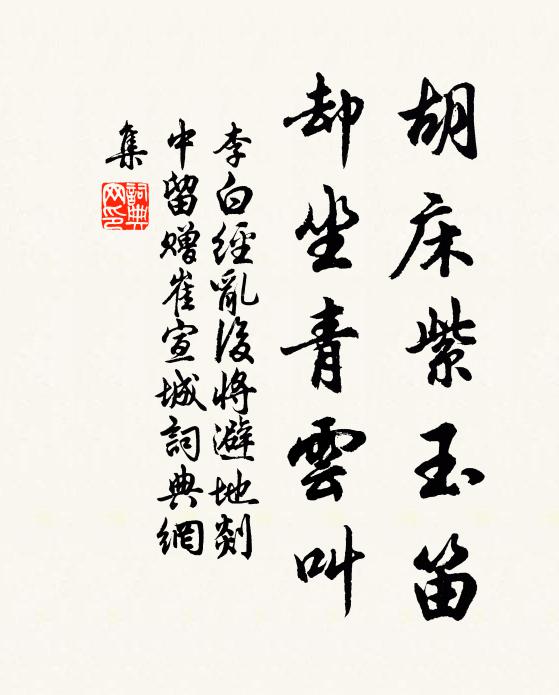 胡床紫玉笛
却坐青雲叫
李白經亂後將避地剡
中留贈崔宣城詞典網
集
詞典
网印